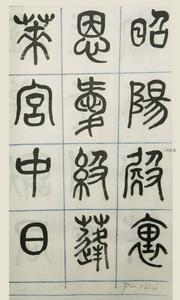 昭陽殿裏
恩愛絕蓬
萊宮中日
P-146